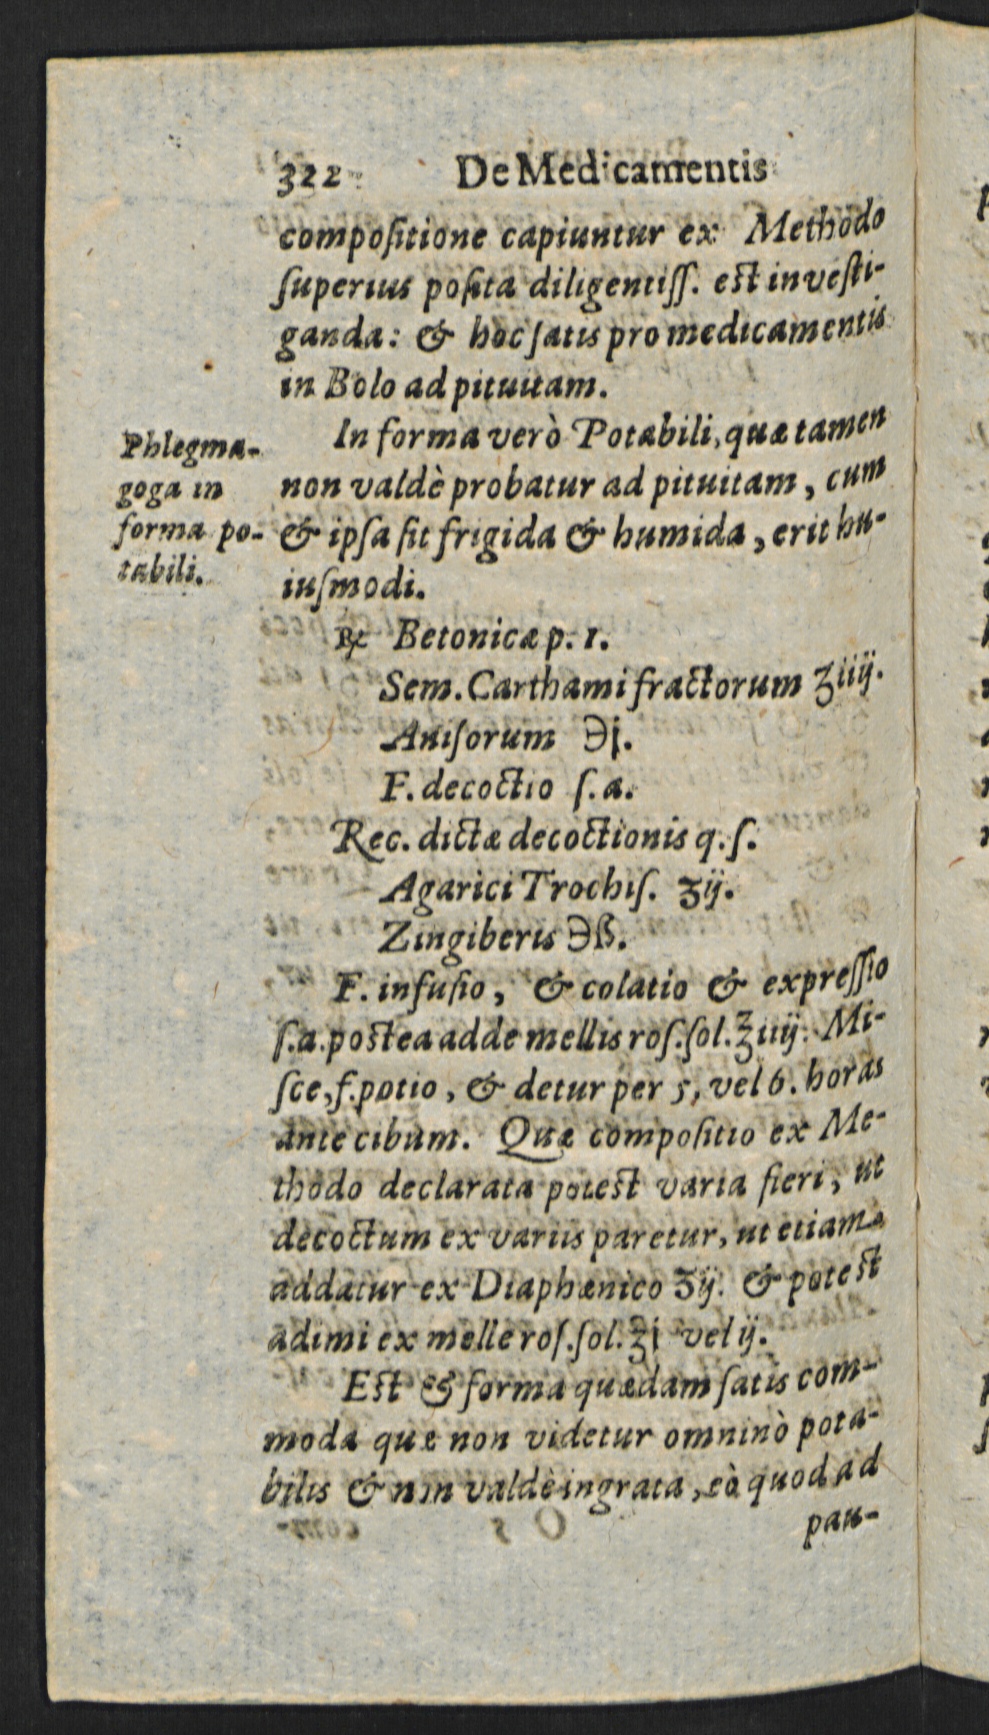 322 De Medicamentis
compoſitione capiuntur ex Methodo
ſuperius poſita diligentiſſ. eſt inveſti-
ganda: & hoc ſatis pro medicamentis
in Bolo ad pituitam.
In forma verò Potabili, quæ tamen
non valdè probatur ad pituitam, cum
& ipſa ſit frigida & humida, erit hu-
iuſmodi.
Phlegma-
goga in
forma po-
tabili.
℞ Betonicæ p. 1.
Sem. Carthami fractorum ʒiiij.
Aniſorum ℈j.
F. decoctio ſ. a.
Rec. dictæ decoctionis q. ſ.
Agarici Trochiſ. ʒij.
Zingiberis ℈ß.
F. infuſio, & colatio & expreſſio
ſ. a. poſtea adde mellis roſ. ſol. ℥iiij. Mi-
ſce, f. potio, & detur per 5, vel 6. horas
ante cibum. Quæ compoſitio ex Me-
thodo declarata poteſt varia fieri, ut
decoctum ex variis paretur, ut etiam
addatur ex Diaphænico ʒij. & poteſt
adimi ex melle roſ. ſol. ℥i vel ij.
Eſt & forma quædam ſatis com-
moda quæ non videtur omninò pota-
bilis & non valdè ingrata, eò quod ad
pau-